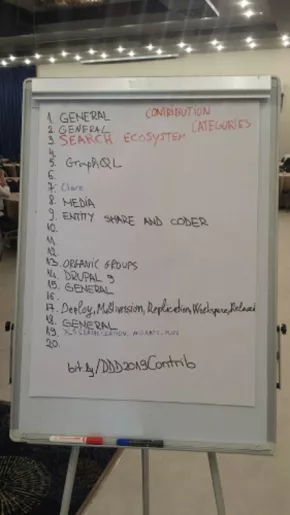 CONTRIBUTION
CATEGORIES
1. GENERAL
2. GENERAL
3. SEARCH ECOSYSTEM
4.
5. GraphQL
6.
7.
8. MEDIA
9. ENTITY SHARE AND CODER
10.
11.
12.
13. ORGANIC GROUPS
14. DRUPAL 9
15. GENERAL
16.
17. Deploy, Multiversion, Replication, Workspace,
18. GENERAL
19.
20.
bit.ly/DDD2019Contrib